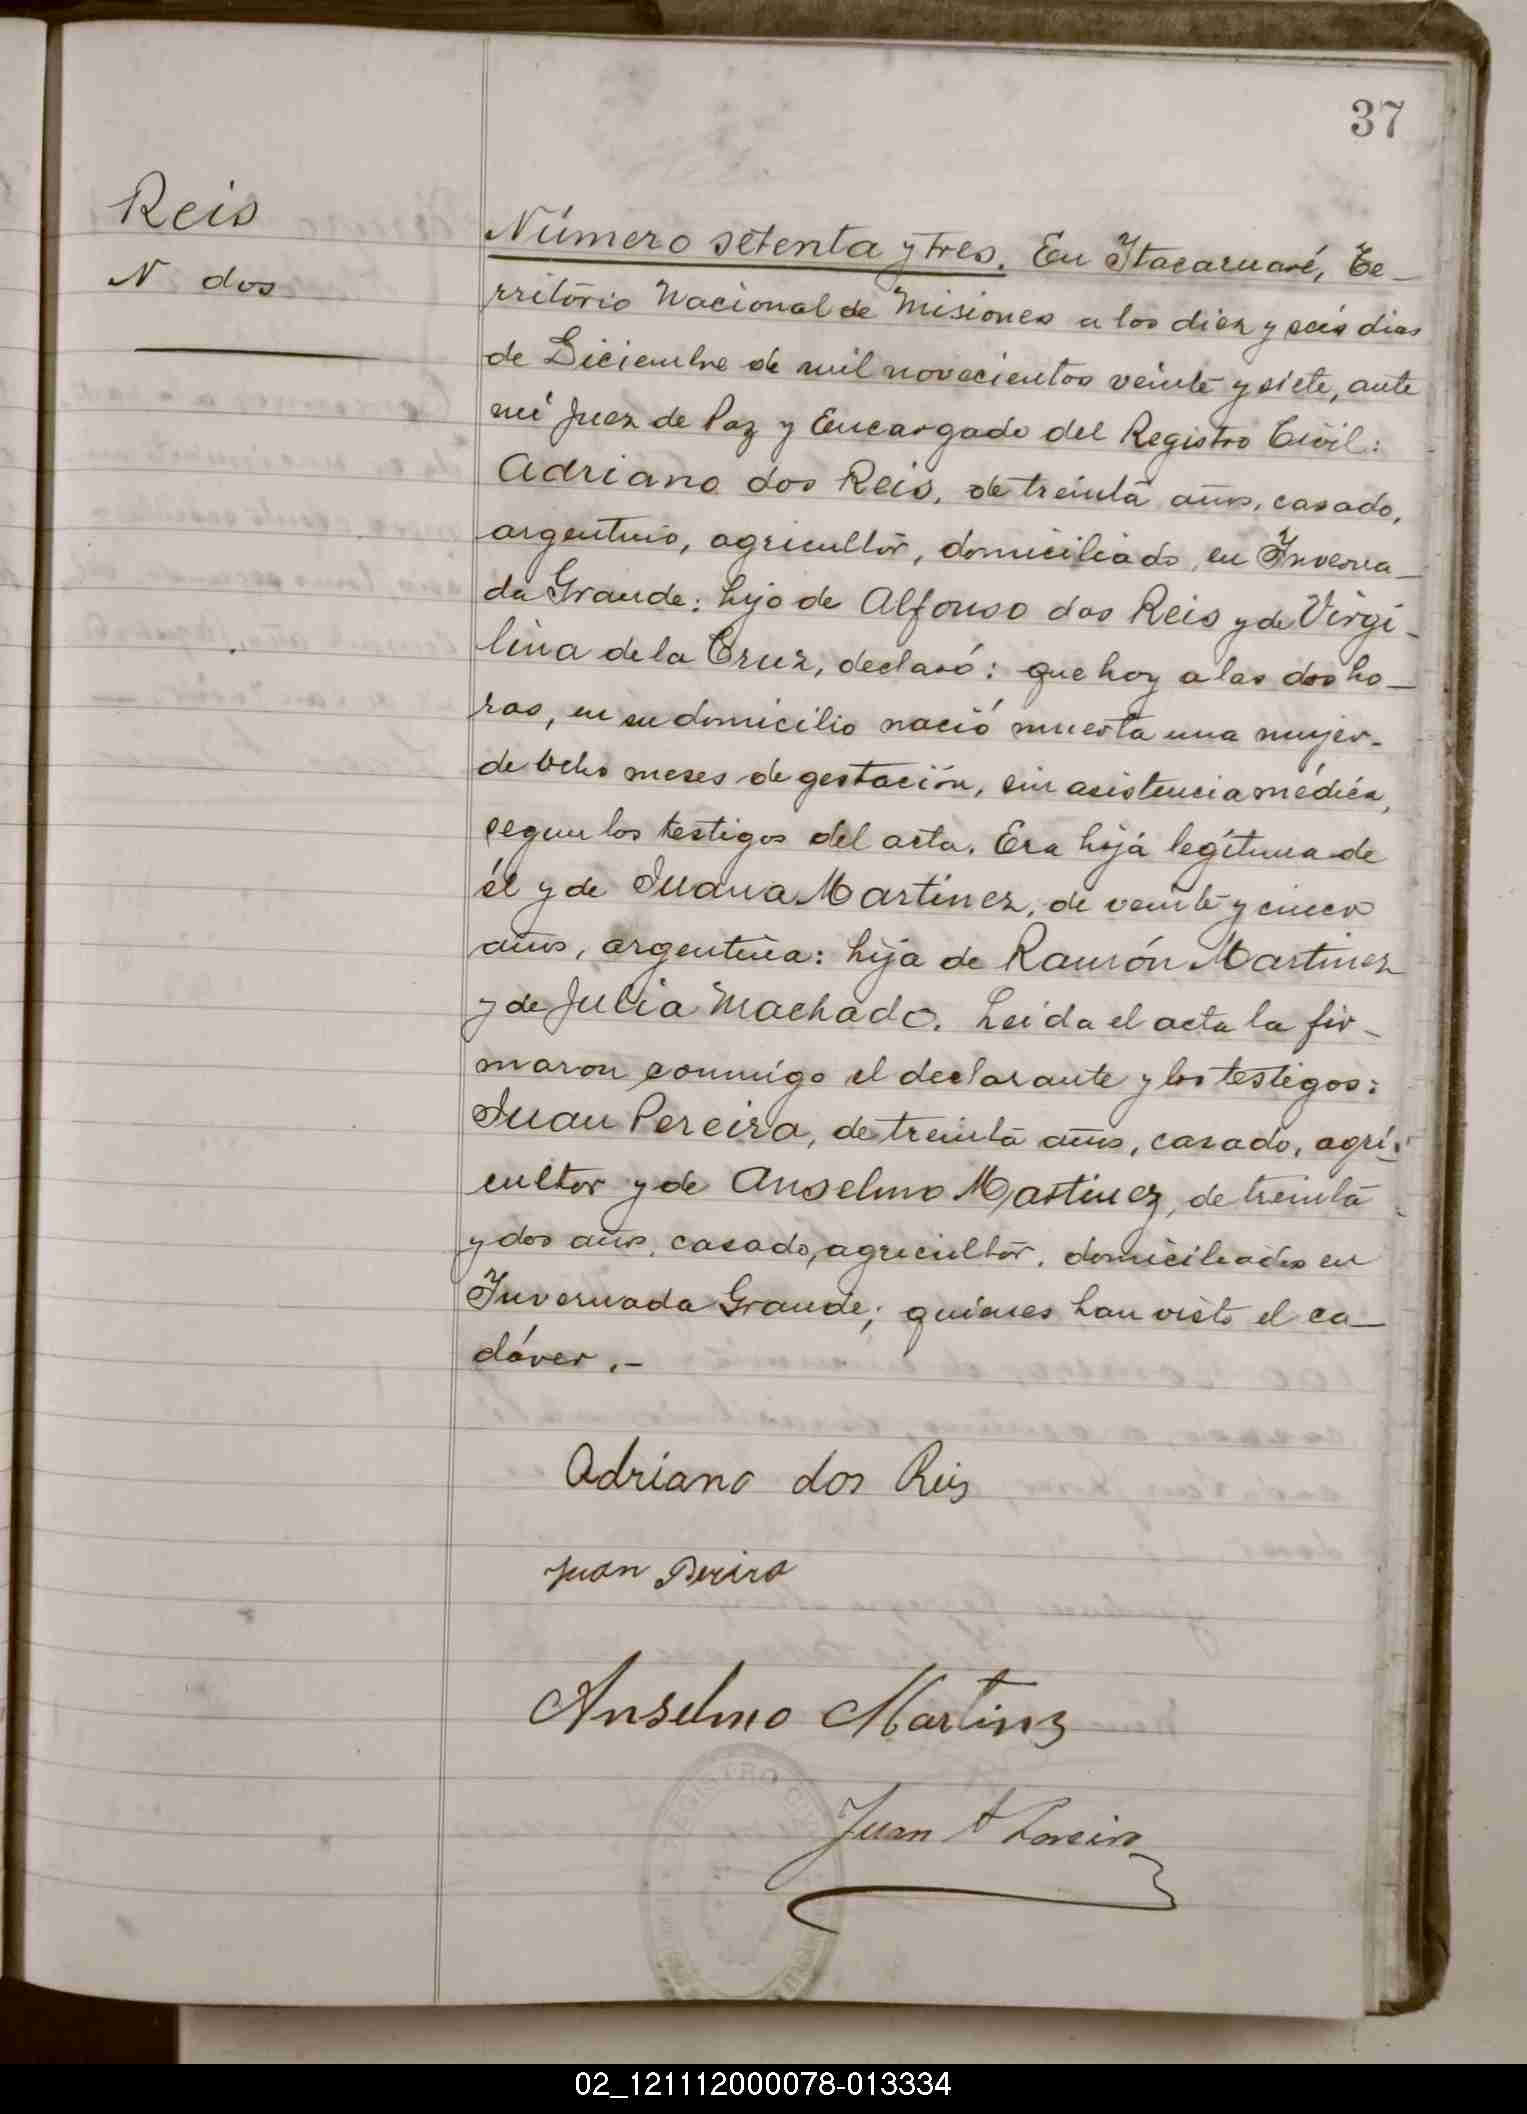 37
Reis
N dos
Número setenta y tres. En Itacaruaré, Te-
rritório Nacional de Misiones a los diez y seis dias
de Diciembre de mil novecientos veinte y siete, ante
mi Juez de Paz y Encargado del Registro Civil:
Adriano dos Reis, de treinta años, casado,
argentino, agricultor, domiciliado en Inverna-
da Grande: hijo de Alfonso dos Reis y de Virgi-
lina de la Cruz, declaró: que hoy a las dos ho-
ras, en su domicilio nació muerta una mujer-
de ocho meses de gestación, sin asistencia médica,
segun los testigos del acta. Era hija legítima de
él y de Juana Martinez, de veinte y cinco
años, argentina: hija de Ramón Martinez
y de Julia Machado. Leida el acta la fir-
maron conmigo el declarante y los testigos:
Juan Pereira, de treinta años, casado, agri-
cultor y de Anselmo Martinez, de treinta
y dos años, casado, agricultor, domiciliados en
Invernada Grande; quienes han visto el ca-
dáver.-
Adriano dos Reis
Juan Pereira
Anselmo Martinz
Juan A
REGISTRO
02_121112000078-013334